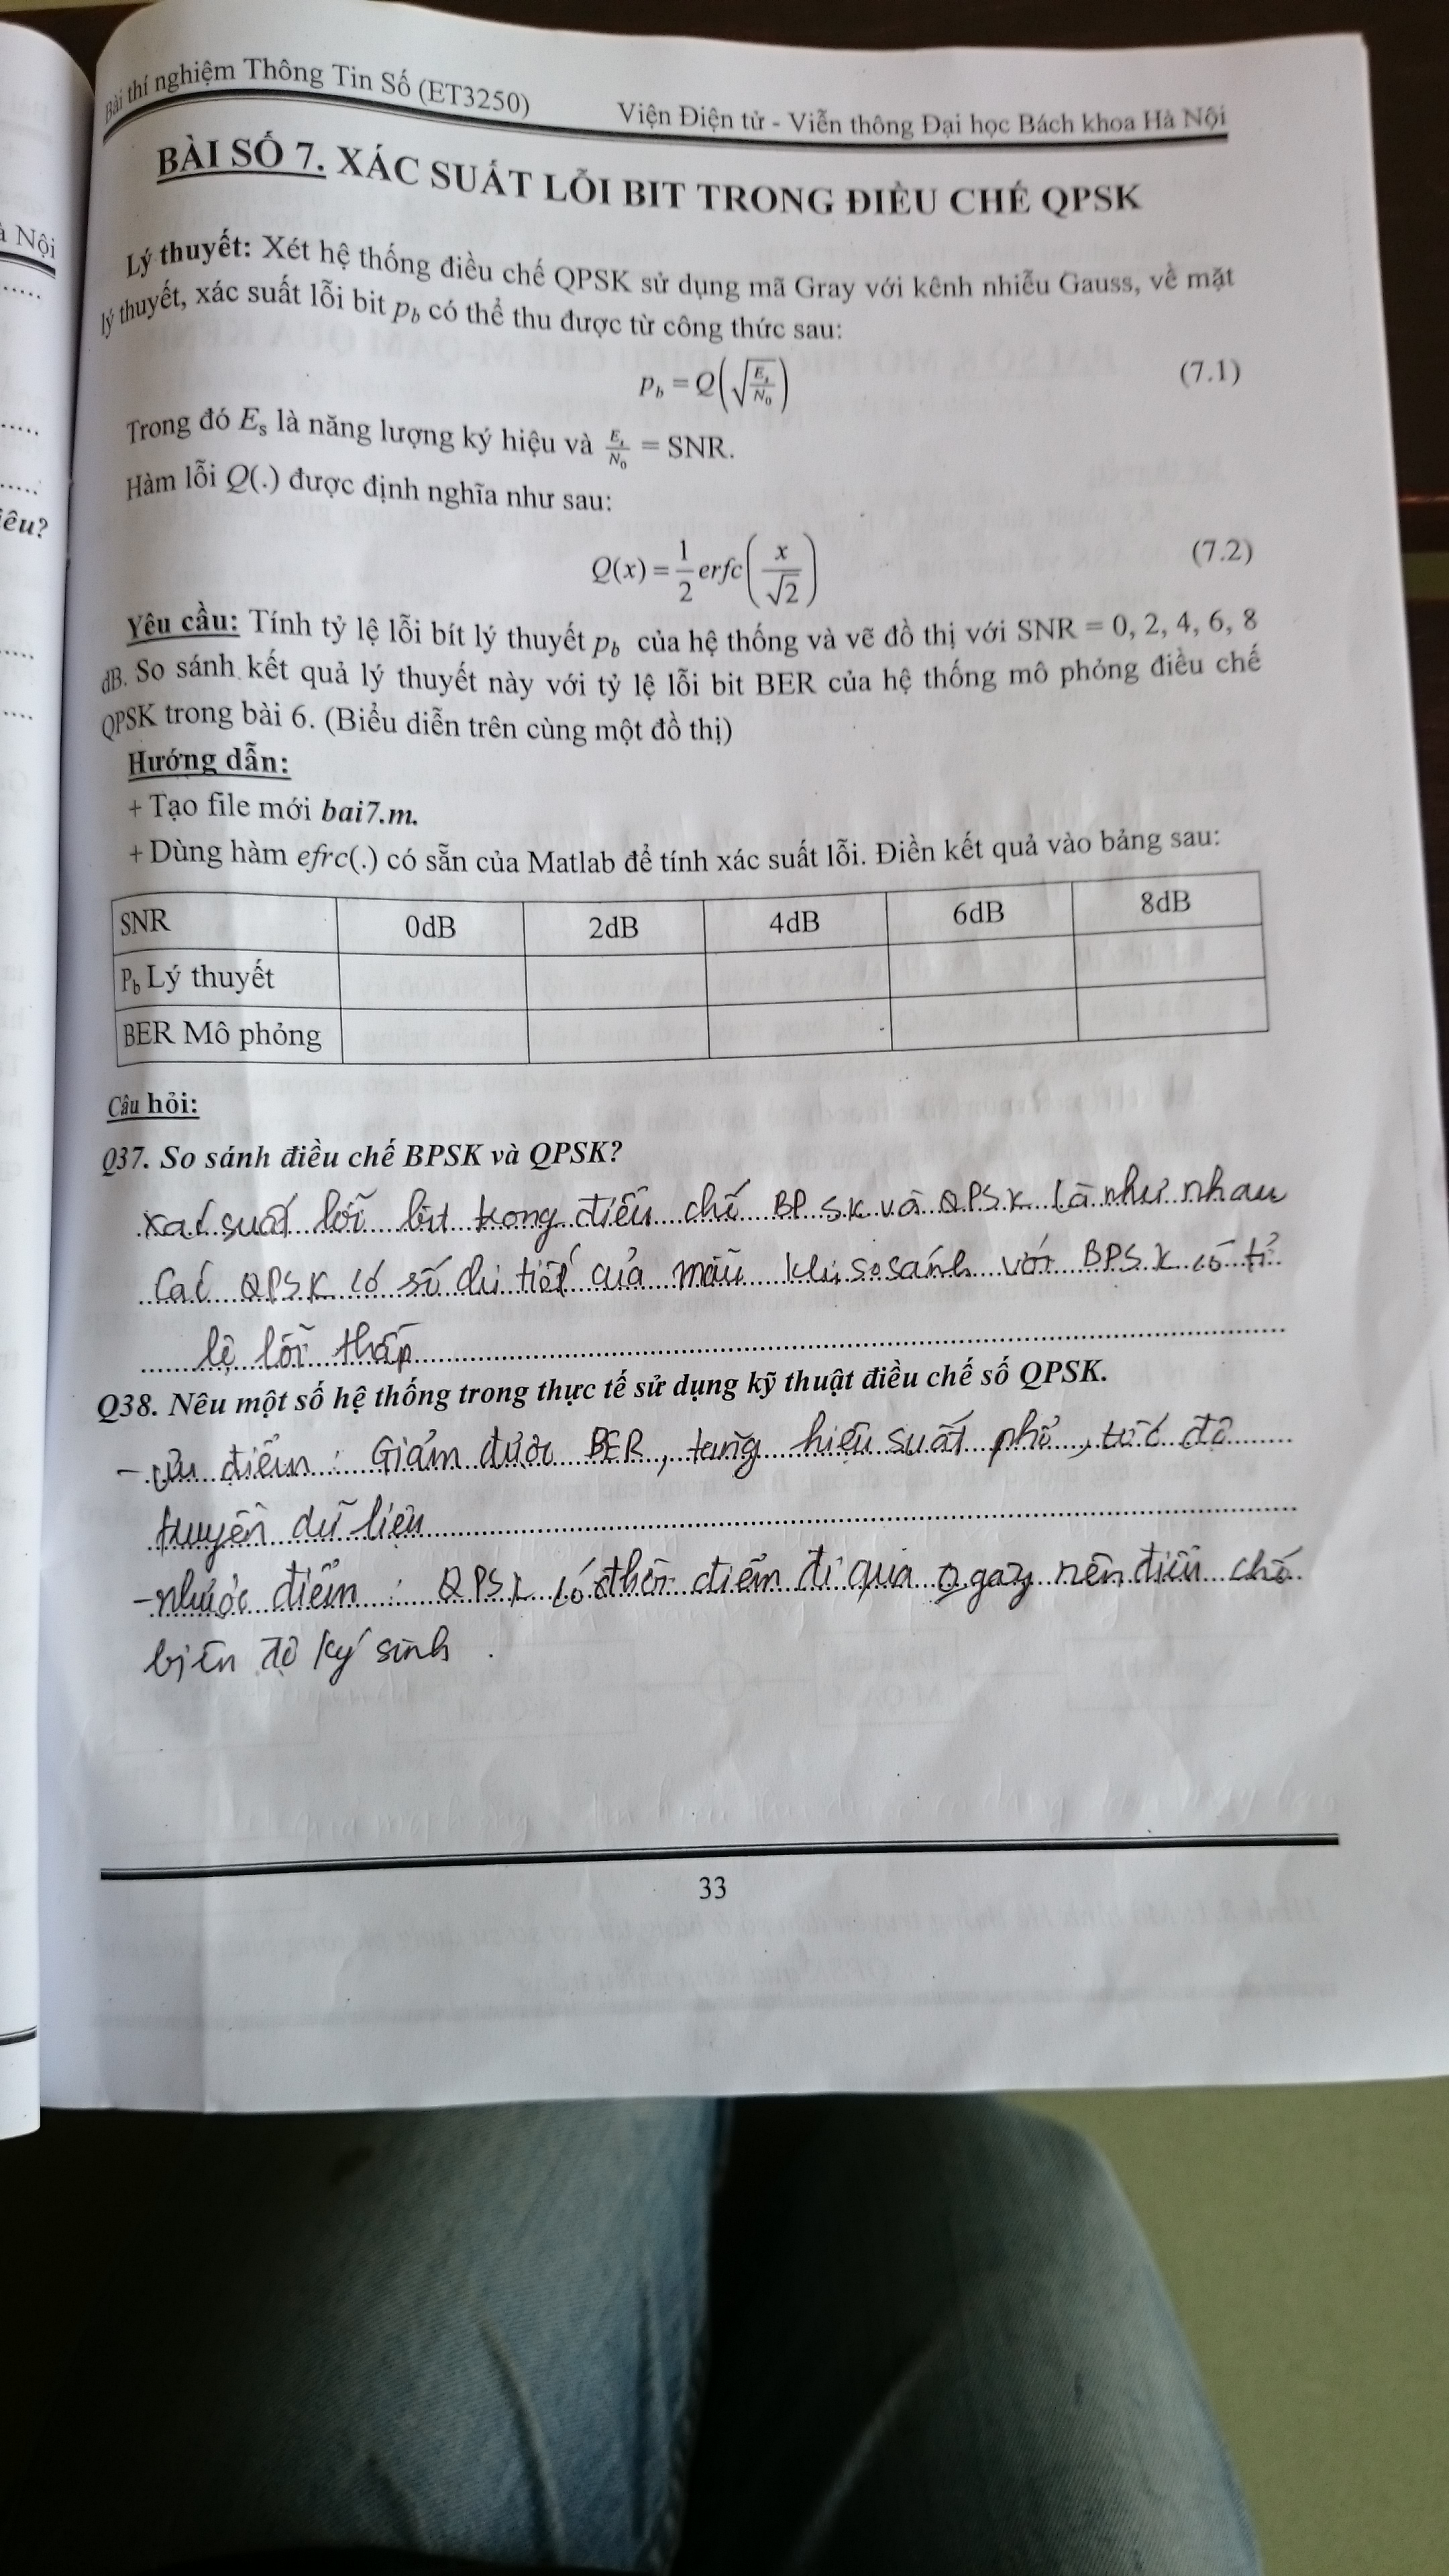 à Nội
iêu?
Bài thí nghiệm Thông Tin Số (ET3250)
Viện Điện tử - Viễn thông Đại học Bách khoa Hà Nội
BÀI SỐ 7. XÁC SUẤT LỖI BIT TRONG ĐIỀU CHẾ QPSK
Lý thuyết: Xét hệ thống điều chế QPSK sử dụng mã Gray với kênh nhiễu Gauss, về mặt
lý thuyết, xác suất lỗi bit p_b có thể thu được từ công thức sau:
p_b = Q(√(E_s/N_0)) (7.1)
Trong đó E_s là năng lượng ký hiệu và E_s/N_0 = SNR.
Hàm lỗi Q(.) được định nghĩa như sau:
Q(x) = 1/2 erfc(x/√2) (7.2)
Yêu cầu: Tính tỷ lệ lỗi bít lý thuyết p_b của hệ thống và vẽ đồ thị với SNR = 0, 2, 4, 6, 8
dB. So sánh kết quả lý thuyết này với tỷ lệ lỗi bit BER của hệ thống mô phỏng điều chế
QPSK trong bài 6. (Biểu diễn trên cùng một đồ thị)
Hướng dẫn:
+ Tạo file mới bai7.m.
+ Dùng hàm efrc(.) có sẵn của Matlab để tính xác suất lỗi. Điền kết quả vào bảng sau:
SNR 0dB 2dB 4dB 6dB 8dB
P_b Lý thuyết
BER Mô phỏng
Câu hỏi:
Q37. So sánh điều chế BPSK và QPSK?
xác suất lỗi bit trong điều chế BPSK và QPSK là như nhau
Các QPSK có số chi tiết của mẫu khi so sánh với BPSK có tỉ
lệ lỗi thấp
Q38. Nêu một số hệ thống trong thực tế sử dụng kỹ thuật điều chế số QPSK.
- ưu điểm : Giảm được BER, tăng hiệu suất phổ, tốc độ
truyền dữ liệu
- nhược điểm : QPSK có thời điểm đi qua 0 gây nên điều chế
biên độ ký sinh .
33